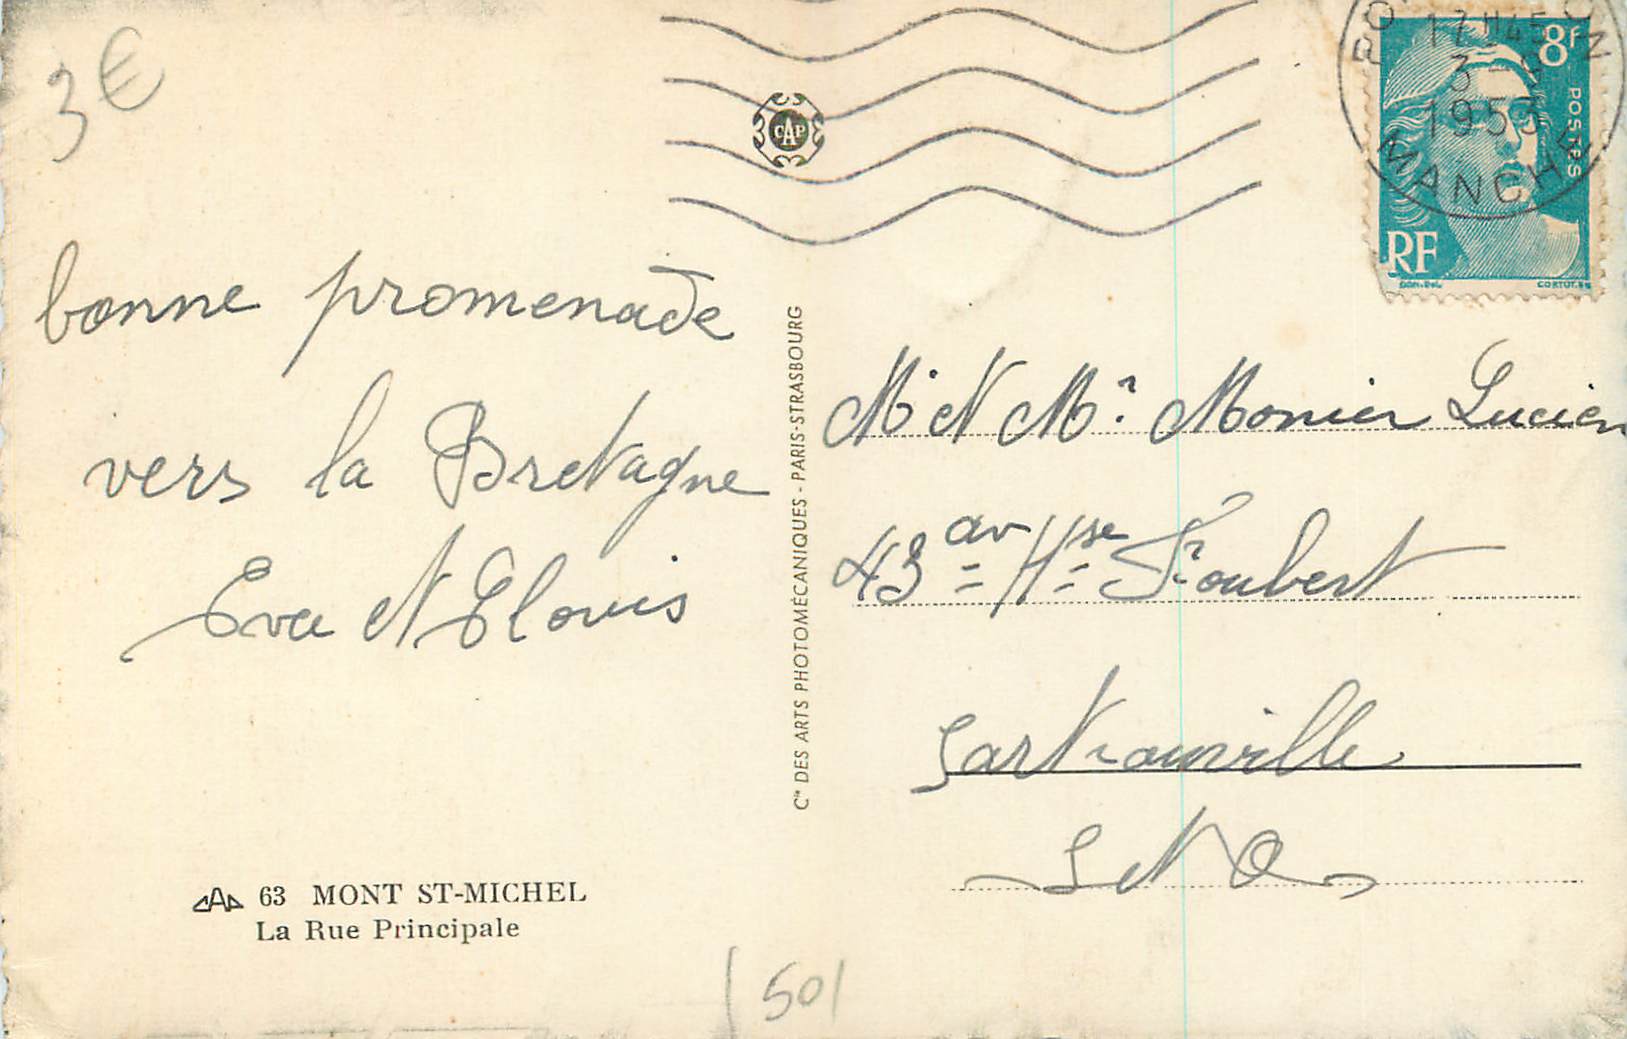 3€
bonne promenade
vers la Bretagne
Eva et Clovis
63 MONT ST-MICHEL
La Rue Principale
(50)
CAP
Cie DES ARTS PHOTOMÉCANIQUES - PARIS-STRASBOURG
17H45
3 -
1953
MANCHE
8f
POSTES
RF
CORTOT.
Mr et Mme Monier Lucien
43 av Hse Foubert
Sartrouville
S et O